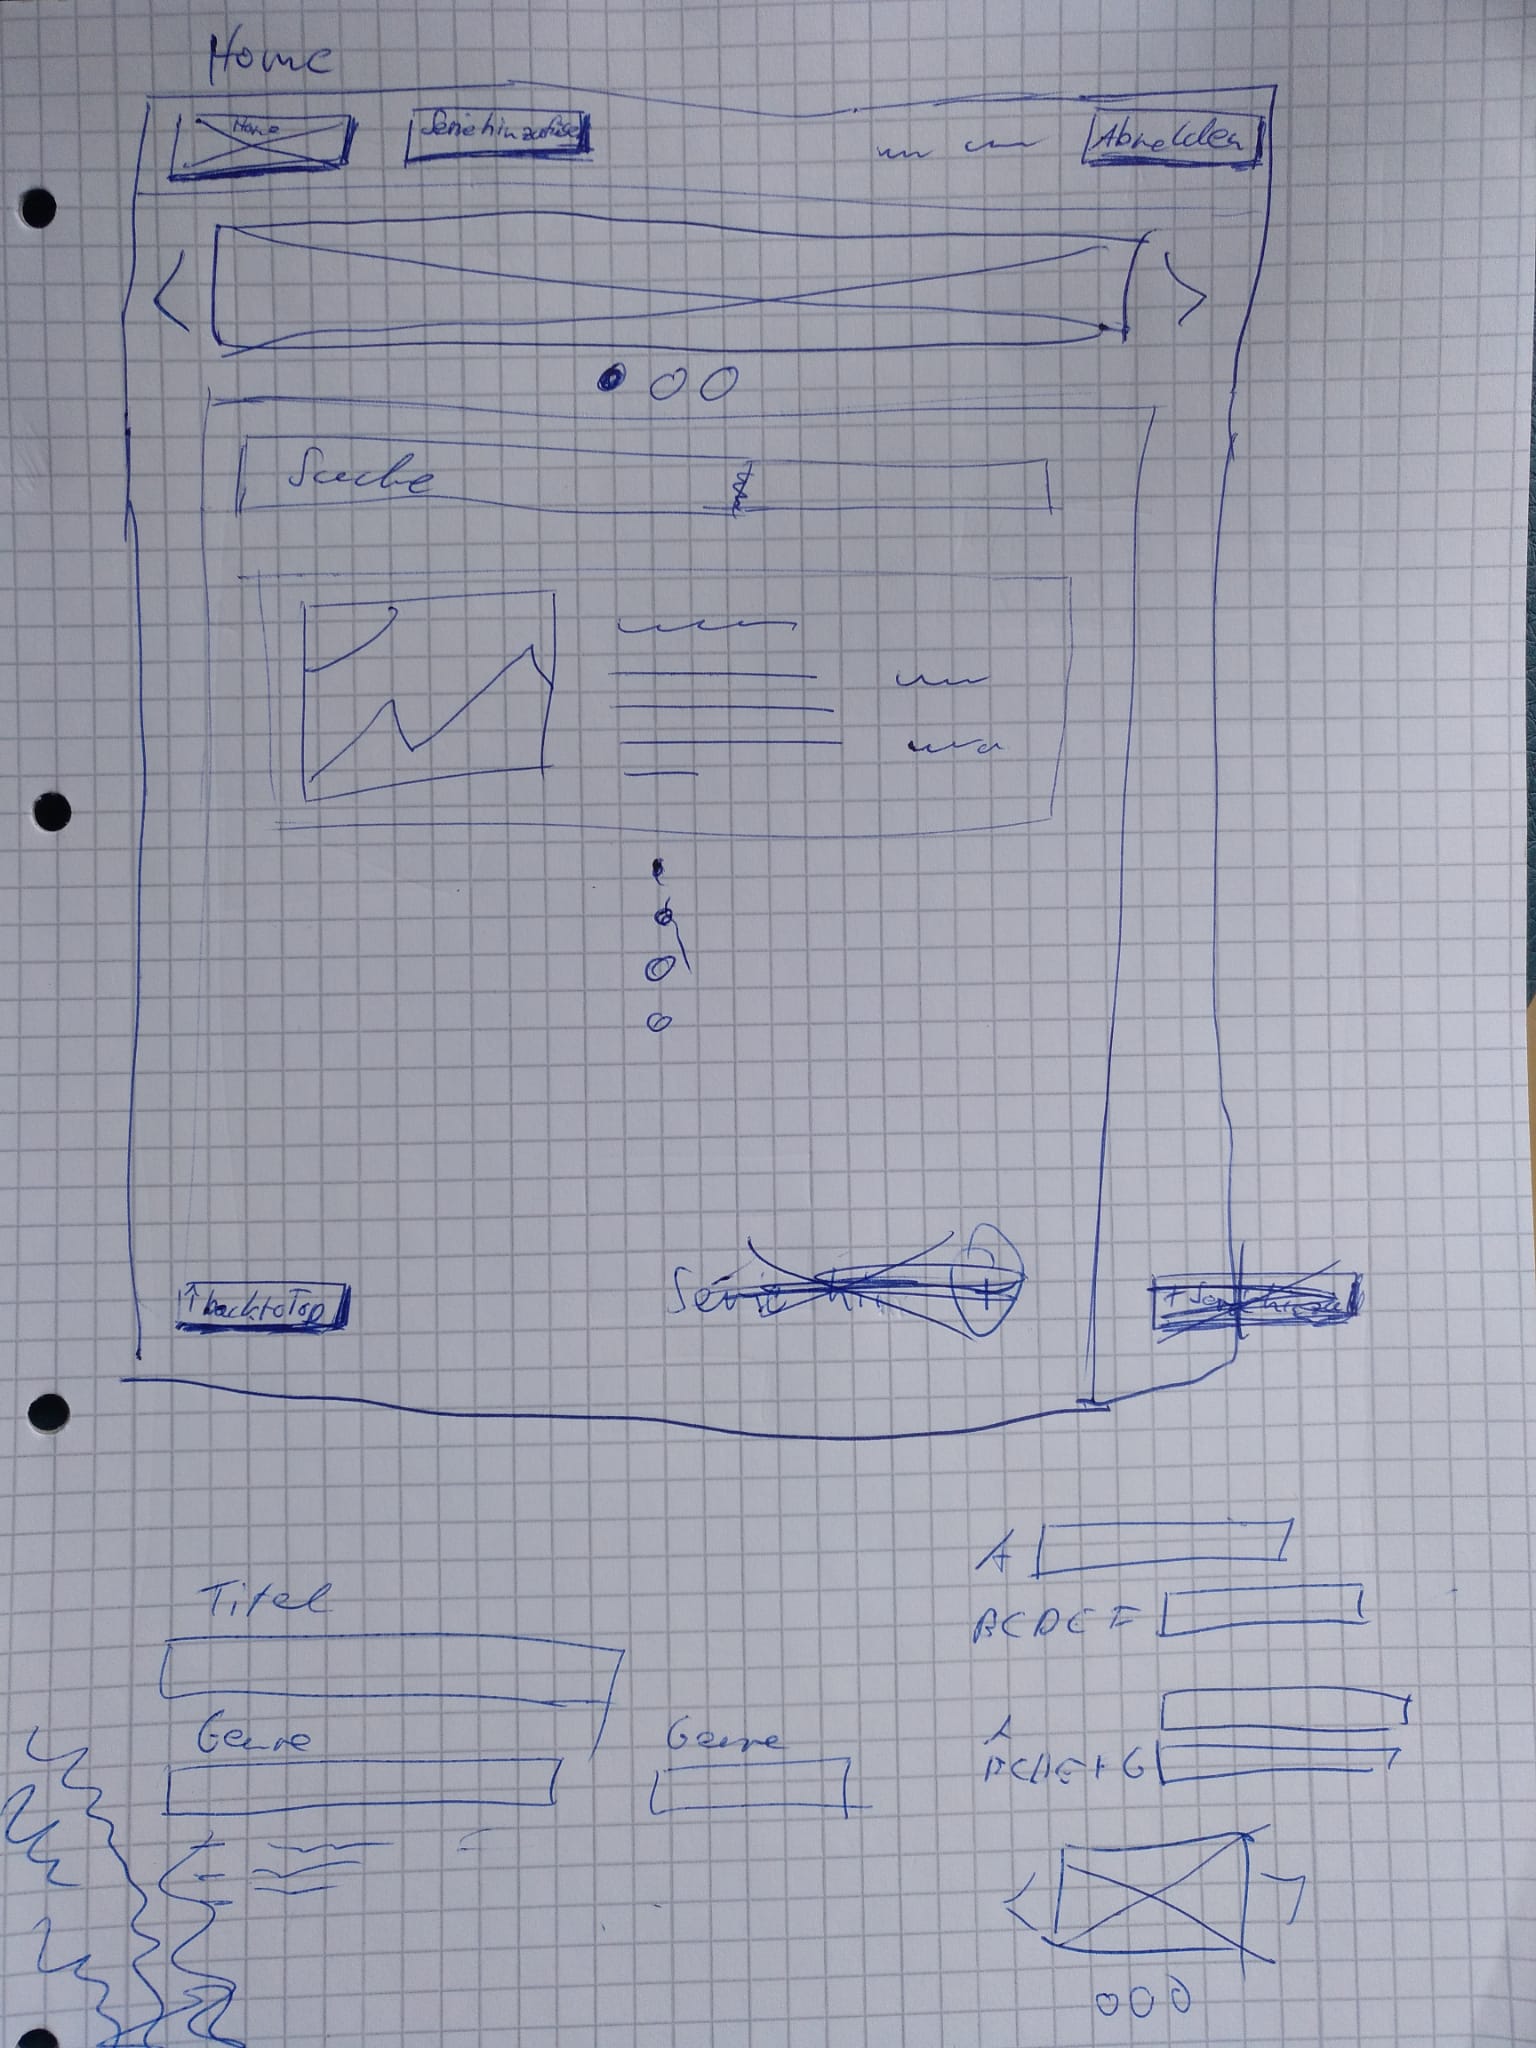 Home
Home
Serie hinzufügen
Abmelden
Suche
↑ back to Top
Serie
Titel
Genre
Genre
A
BCDEF
A